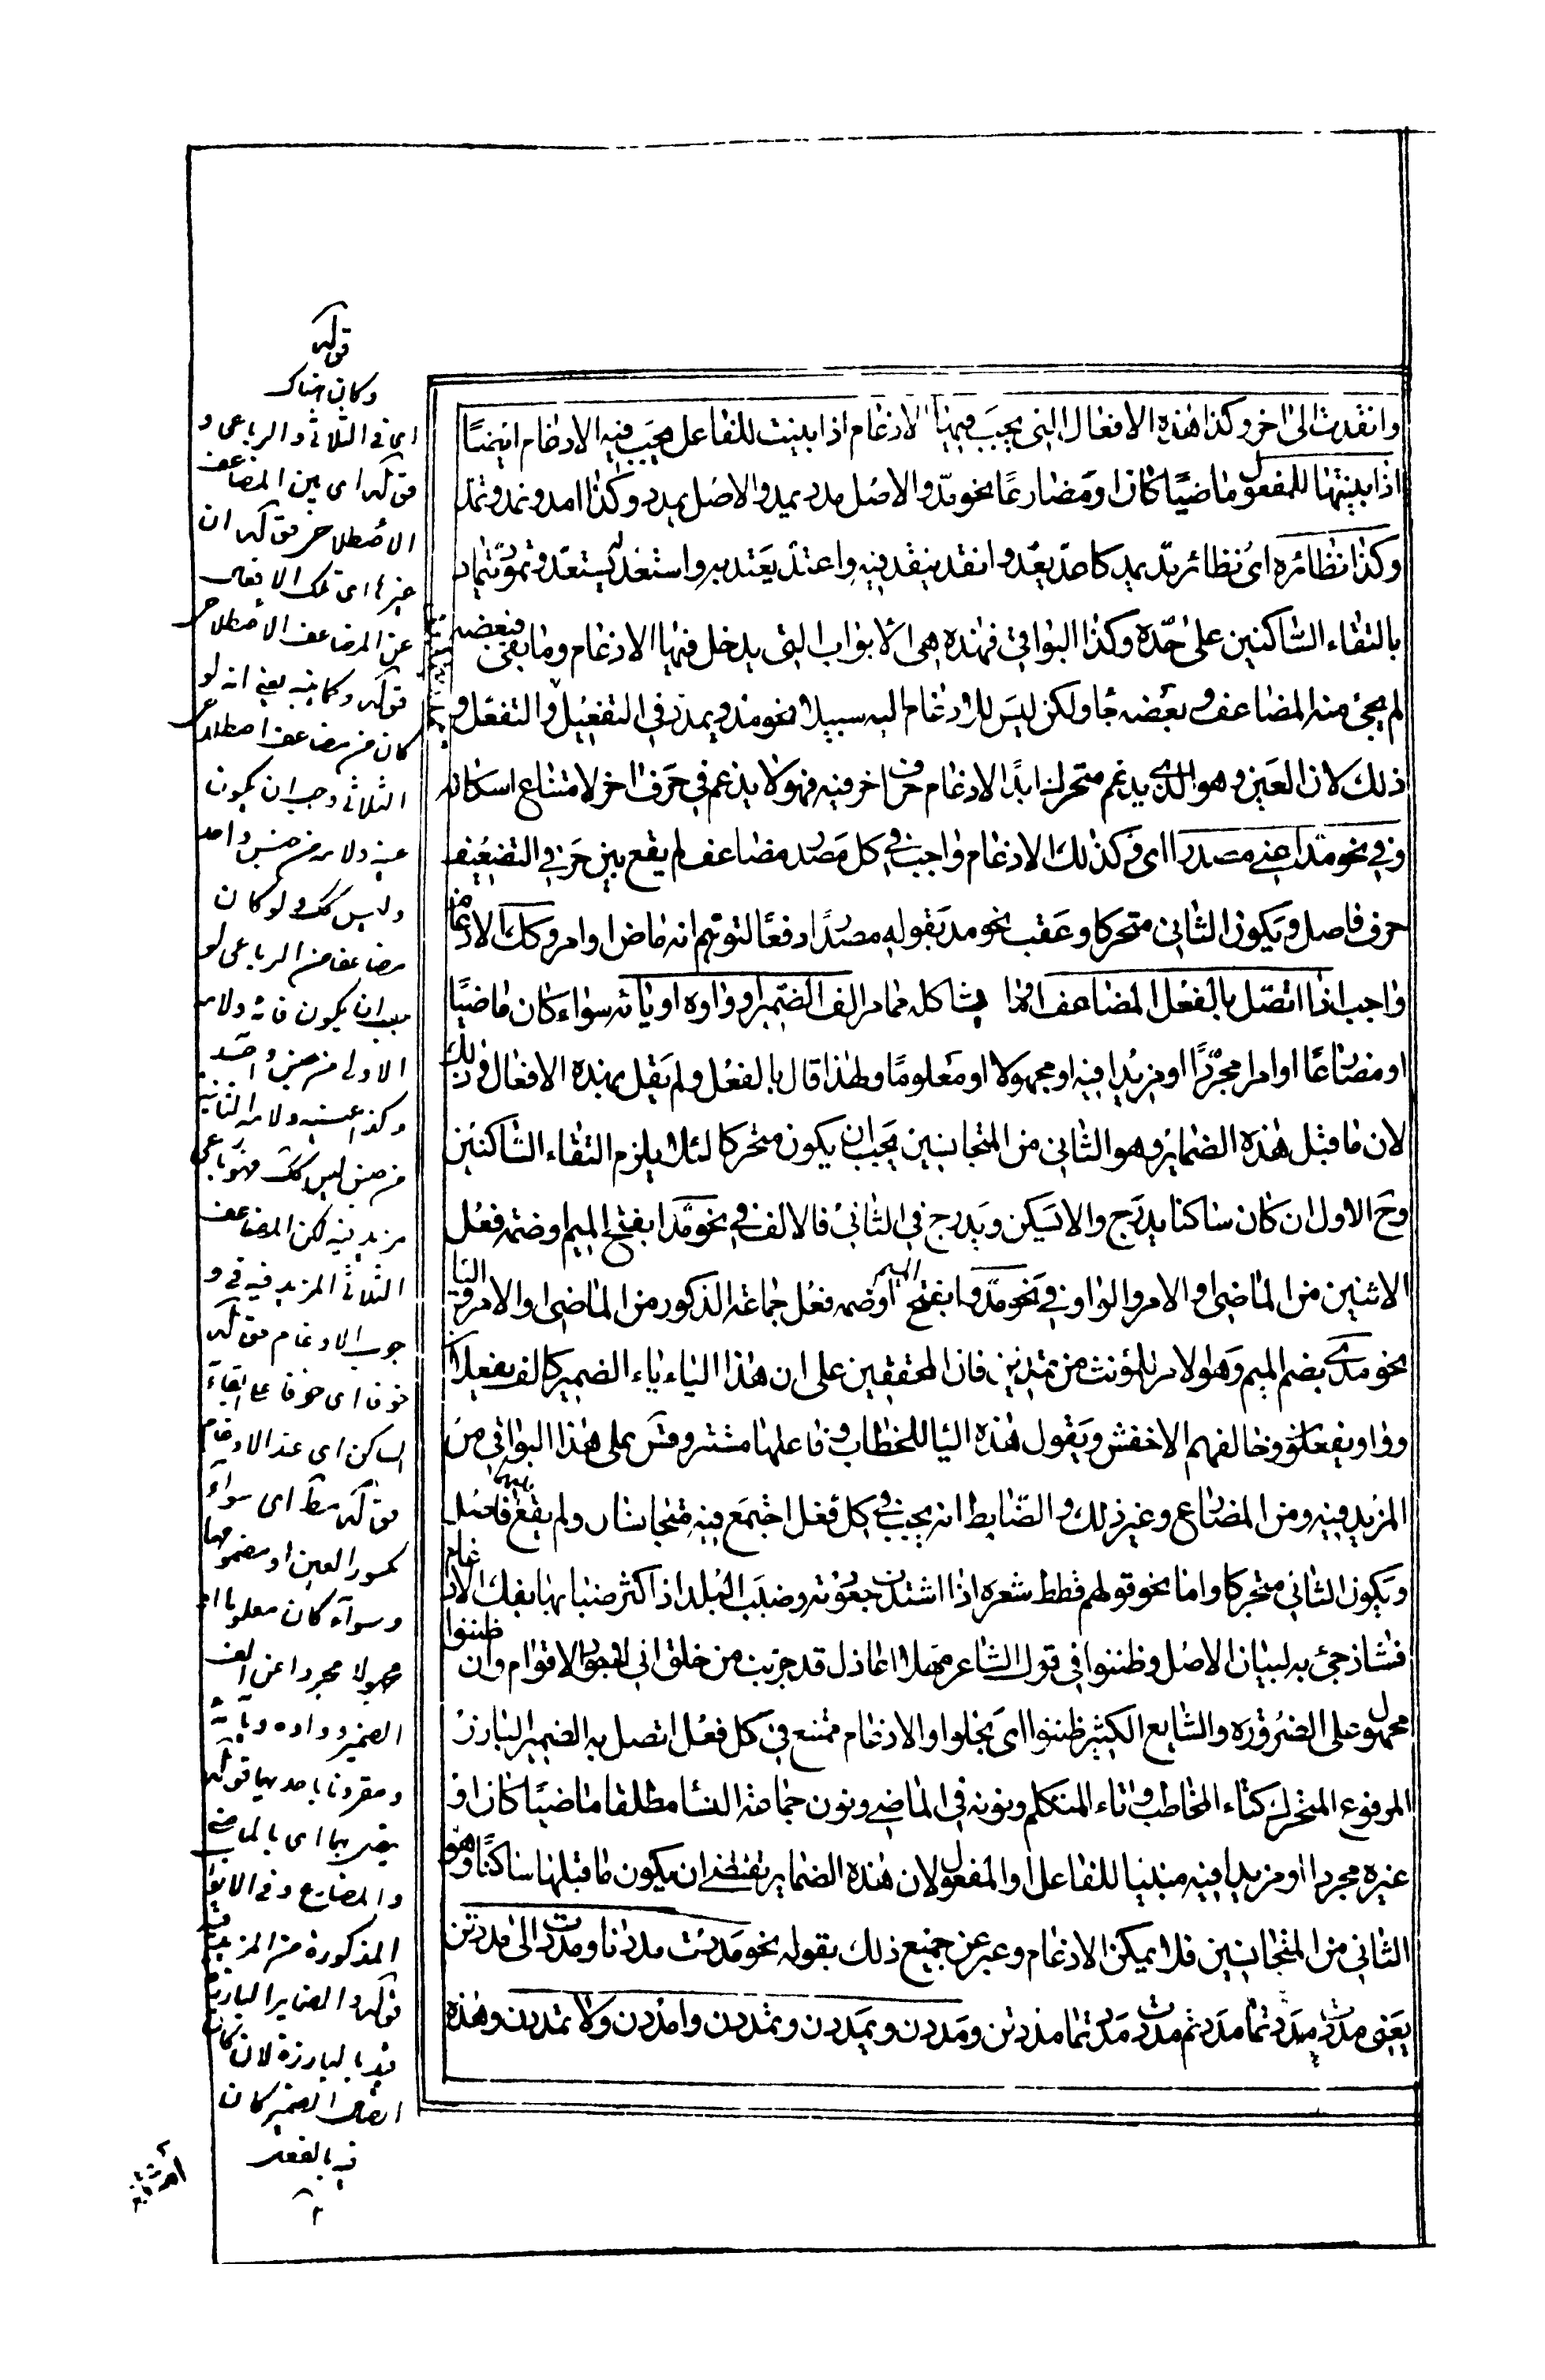 وانقدت الى اخره وكذا هذه الافعال التى يجب فيها الادغام اذا بنيت للفاعل يجب فيه الادغام ايضًا
اذا بنيتها للمفعول ماضيًا كان او مضارعًا نحو مدّ والاصل مدد ويمد والاصل يمدد وكذا امد ونمد وتمد
وكذا نظائره اى نظائر مدّ يمد كاعدّ يعدّ وانقد ينقد فيه واعتد يعتد به واستعد يستعد وتمودّ يتماد
بالتقاء الساكنين على حدّه وكذا البواقى فهذه هى الابواب التى يدخل فيها الادغام وما بقى فبعضه
لم يجئ منه المضاعف وبعضه جاء ولكن ليس للادغام اليه سبيل نحو مدد يمدد فى التفعيل والتفعّل و
ذلك لان العين وهو الذى يدغم متحرك ابدًا لادغام حرف اخر فيه فهو لا يدغم فى حرف اخر لامتناع اسكانه
وفى نحو مدّ اعنى مصدرا اى وكذلك الادغام واجب فى كل مصدر مضاعف لم يقع بين حرفى التضعيف
حرف فاصل ويكون الثانى متحركا وعقب نحو مد بقوله مصدرًا دفعًا لتوهم انه ماض او امر وكك الادغام
واجب اذا اتصل بالفعل المضاعف او ما يشاكله مما مر الف الضمير او واوه او يائه سواء كان ماضيًا
او مضارعًا او امرا مجردًا او مزيدا فيه او مجهولا او معلومًا ولهذا قال بالفعل ولم يقل بهذه الافعال وذلك
لان ما قبل هذه الضماير وهو الثانى من المتجانسين يجب ان يكون متحركا لئلا يلزم التقاء الساكنين
وح الاول ان كان ساكنا يدرج والا يسكن ويدرج فى الثانى فالالف فى نحو مدّا بفتح الميم او ضمه فعل
الاثنين من الماضى او الامر والواو فى نحو مدّوا بفتح الميم او ضمه فعل جماعة الذكور من الماضى او الامر والياء
نحو مدّى بضم الميم وهو الامر للمؤنث من تمدين فان المحققين على ان هذا الياء ياء الضمير كالف يفعلان
وواو يفعلون وخالفهم الاخفش ويقول هذه الياء للخطاب وفاعلها مستتر وقس على هذا البواقى من
المزيد فيه ومن المضارع وغير ذلك والضابط انه يجب فى كل فعل اجتمع فيه متجانسان ولم يقع بينهما فاصل
ويكون الثانى متحركا واما نحو قولهم قطط شعره اذا اشتدت جعودته وضبب البلد اذا كثر ضبابها بفك الادغام
فشاذ جئ به لبيان الاصل وظننوا فى قول الشاعر مهلا اعاذل قد جربت من خلقى انى اجود لاقوام وان ظننوا
محمول على الضرورة والشايع الكثير ظننوا اى بخلوا والادغام ممتنع فى كل فعل اتصل به الضمير البارز
المرفوع المتحرك كتاء المخاطب وتاء المتكلم ونونه فى الماضى ونون جماعة النساء مطلقا ماضيًا كان او
غيره مجردا او مزيدا فيه مبنيا للفاعل او المفعول لان هذه الضماير تقتضى ان يكون ما قبلها ساكنًا وهو
الثانى من المتجانسين فلا يمكن الادغام وعبر عن جميع ذلك بقوله نحو مددت مددنا ومددت الى مددتن
يعنى مددت مددتما مددتم مددت مددتما مددتن ومددن ويمددن وتمددن وامددن ولا تمددن وهذه
قوله
وكان هناك
اى فى الثلاثى والرباعى و
قوله اى بين المضاعف
الاصطلاحى قوله ان
غيرها اى تلك الافعال
عن المضاعف الاصطلاحى
كان من مضاعف اصطلاحى
الثلاثى وجب ان يكون
عينه ولامه من جنس واحد
وليس كك ولو كان
مضاعف من الرباعى لو
يجب ان يكون فائه ولامه
الاولى من جنس واحد
وكذا عينه ولامه الثانية
من جنس ليس كك
مزيد فيه لكن المضاعف
الثلاثى المزيد فيه فى و
جوب الادغام قوله
الساكن اى عند الادغام
مكسور العين او مضمومها
وسواء كان معلوما او
مجهولا مجردا عن الف
الضمير وواوه ويائه
ومقرونا باحديها قوله
بهما اى بالماضى
والمضارع وفى الابواب
المذكورة من المزيد فيه
قوله والضماير البارزة
قيد بالبارزة لان
اتصال الضمير كان
فيه بالفعل